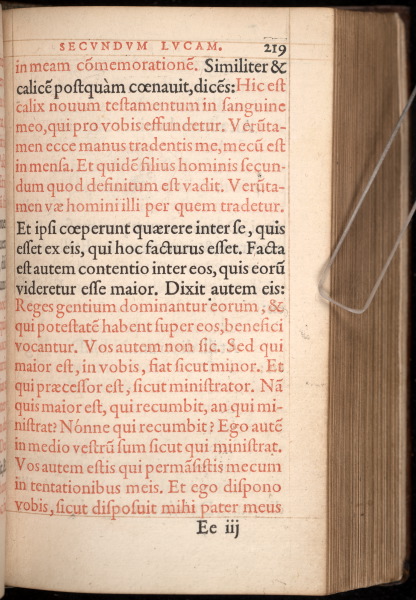 SECVNDVM LVCAM. 219
in meam cōmemorationē. Similiter &
calicē postquàm cœnauit, dicēs: Hic est
calix nouum testamentum in sanguine
meo, qui pro vobis effundetur. Verūta-
men ecce manus tradentis me, mecū est
in mensa. Et quidē filius hominis secun-
dum quod definitum est vadit. Verūta-
men væ homini illi per quem tradetur.
Et ipsi cœperunt quærere inter se, quis
esset ex eis, qui hoc facturus esset. Facta
est autem contentio inter eos, quis eorū
videretur esse maior. Dixit autem eis:
Reges gentium dominantur eorum, &
qui potestatē habent super eos, benefici
vocantur. Vos autem non sic. Sed qui
maior est, in vobis, fiat sicut minor. Et
qui præcessor est, sicut ministrator. Nā
quis maior est, qui recumbit, an qui mi-
nistrat? Nónne qui recumbit? Ego autē
in medio vestrū sum sicut qui ministrat.
Vos autem estis qui permāsistis mecum
in tentationibus meis. Et ego dispono
vobis, sicut disposuit mihi pater meus
Ee iij